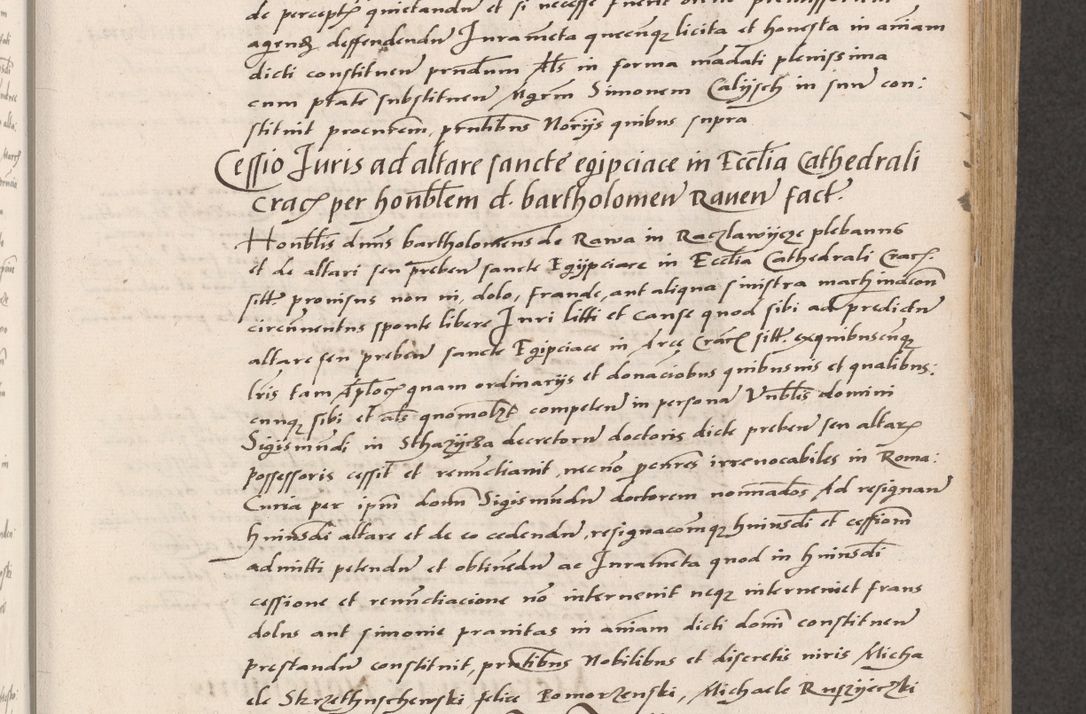 de percept quietandũ et si necesse fuerit
agenđ deffendendũ Iurameta queenqȝ licita et honesta in aniam
dicti constituen prndum Als in forma mādati plenissima
cum ptate substituen Mgrm Simonem Calijsch in sun con:
stituit procurem, prntibus Norijs quibus supra
Cessio Iuris ad altare sancte egipciace in Ecclia Cathedrali
Crac per honblem d. bartholomeu Rauen fact.
Honblis dnns bartholomeus de Rawa in Raczlawijcze plebanus
et de altari seu preben sancte Egijpciace in Ecclia Cathedrali Crac.
sitt. prouisus non vi, dolo, fraude, aut aliqua sinistra machindeom
circuuentus sponte libere Iuri litti et causę quod sibi ad predictu
altare seu preben sancte Egipciace in Arce Crac sitt. exquibuscuqȝ
lris tam Aplicis quam ordinarijs et donaciobus quibusuis et qualibus:
cunqȝ sibi et als quomolȝt competen in persona Vnblis domini
Sigismūdi in Sthazijcza decretoru doctoris dicte preben seu altar
possessoris cessit et renuctianit, necno pcures irreuocabiles in Roma:
Curia per ipm domn Sigismūdu doctorem nominados Ad resignan
huiusdi altare et de eo cedendu, resignacomqȝ huiusdi et cessiom
admitti petendu et obtinedu ac Iurameta quod in huiusdi
cessione et renuctiacione no interuenit neqȝ interueniet fraus
dolus aut simonie prauitas in aniam dicti domi constituen
prestandu constituit, prntibus Nobilibus et discretis viris Micha
ele Skrzethuschewski felice Pomorzenski, Michaele Ruszijeczki